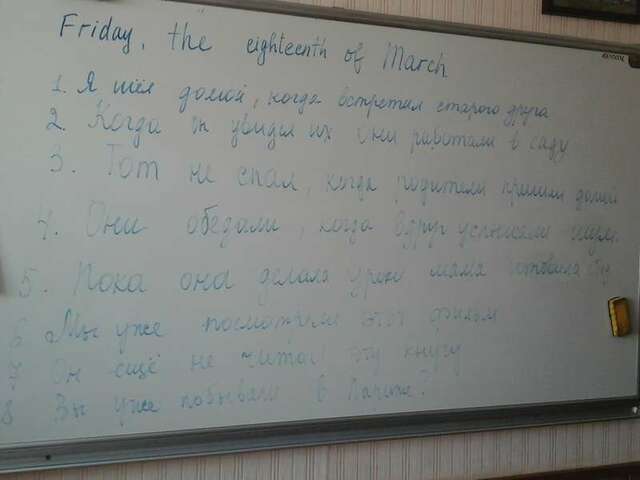 Friday, the eighteenth of March
1. Я шёл домой, когда встретил старого друга
2. Когда он увидел их они работали в саду
3. Том не спал, когда родители пришли домой
4. Они обедали, когда вдруг услышали шум.
5. Пока она делала уроки мама готовила
6 Мы уже посмотрели этот фильм
7 Он ещё не читал эту книгу
8 Вы уже побывали в Париже?